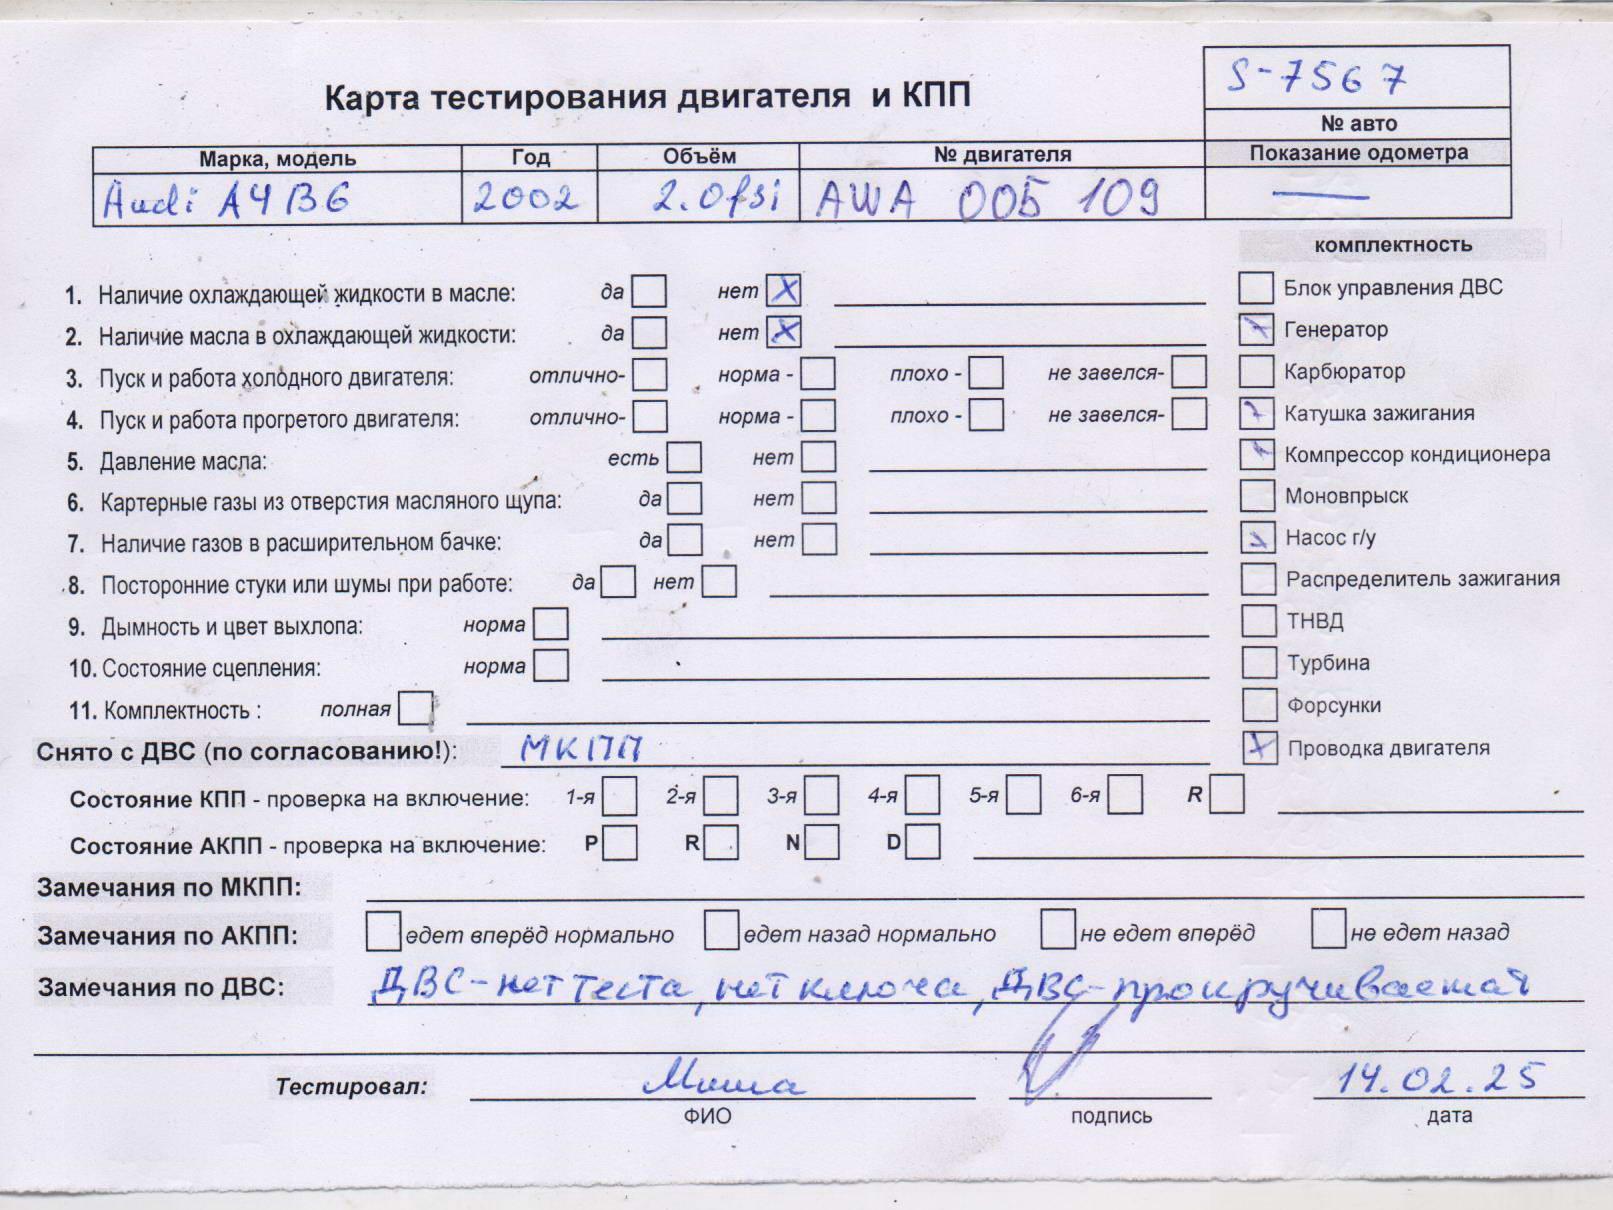 S-7567
Карта тестирования двигателя и КПП
№ авто
Марка, модель Год Объём № двигателя Показание одометра
Audi A4 B6 2002 2.0fsi AWA 005 109 —
комплектность
1. Наличие охлаждающей жидкости в масле: да нет X
Блок управления ДВС
2. Наличие масла в охлаждающей жидкости: да нет X
Генератор
3. Пуск и работа холодного двигателя: отлично- норма - плохо - не завелся-
Карбюратор
4. Пуск и работа прогретого двигателя: отлично- норма - плохо - не завелся-
Катушка зажигания
5. Давление масла: есть нет
Компрессор кондиционера
6. Картерные газы из отверстия масляного щупа: да нет
Моновпрыск
7. Наличие газов в расширительном бачке: да нет
Насос г/у
8. Посторонние стуки или шумы при работе: да нет
Распределитель зажигания
9. Дымность и цвет выхлопа: норма
ТНВД
10. Состояние сцепления: норма
Турбина
11. Комплектность : полная
Форсунки
Снято с ДВС (по согласованию!): МКПП
Проводка двигателя
Состояние КПП - проверка на включение: 1-я 2-я 3-я 4-я 5-я 6-я R
Состояние АКПП - проверка на включение: P R N D
Замечания по МКПП:
Замечания по АКПП: едет вперёд нормально едет назад нормально не едет вперёд не едет назад
Замечания по ДВС: ДВС-нет теста, нет ключа, ДВС-прокручивается
Тестировал: Миша 14.02.25
ФИО подпись дата